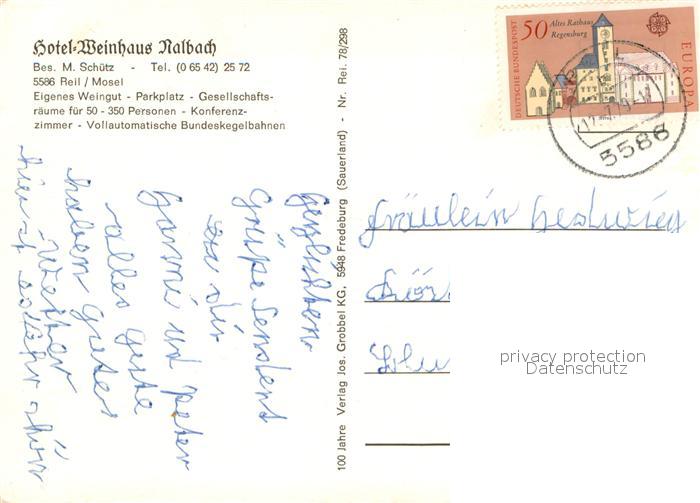 Hotel-Weinhaus Nalbach
Bes. M. Schütz - Tel. (0 65 42) 25 72
5586 Reil / Mosel
Eigenes Weingut - Parkplatz - Gesellschafts-
räume für 50 - 350 Personen - Konferenz-
zimmer - Vollautomatische Bundeskegelbahnen
100 Jahre Verlag Jos. Grobbel KG, 5948 Fredeburg (Sauerland) - Nr. Rei. 78/298
DEUTSCHE BUNDESPOST
50
Altes Rathaus
Regensburg
EUROPA
5586
Herzlichen
Grüße sendent
dir
Hanni und Peter
alles Gute
haben Gutes
Wetter
hier ist schön
Fräulein Hedwig
privacy protection
Datenschutz